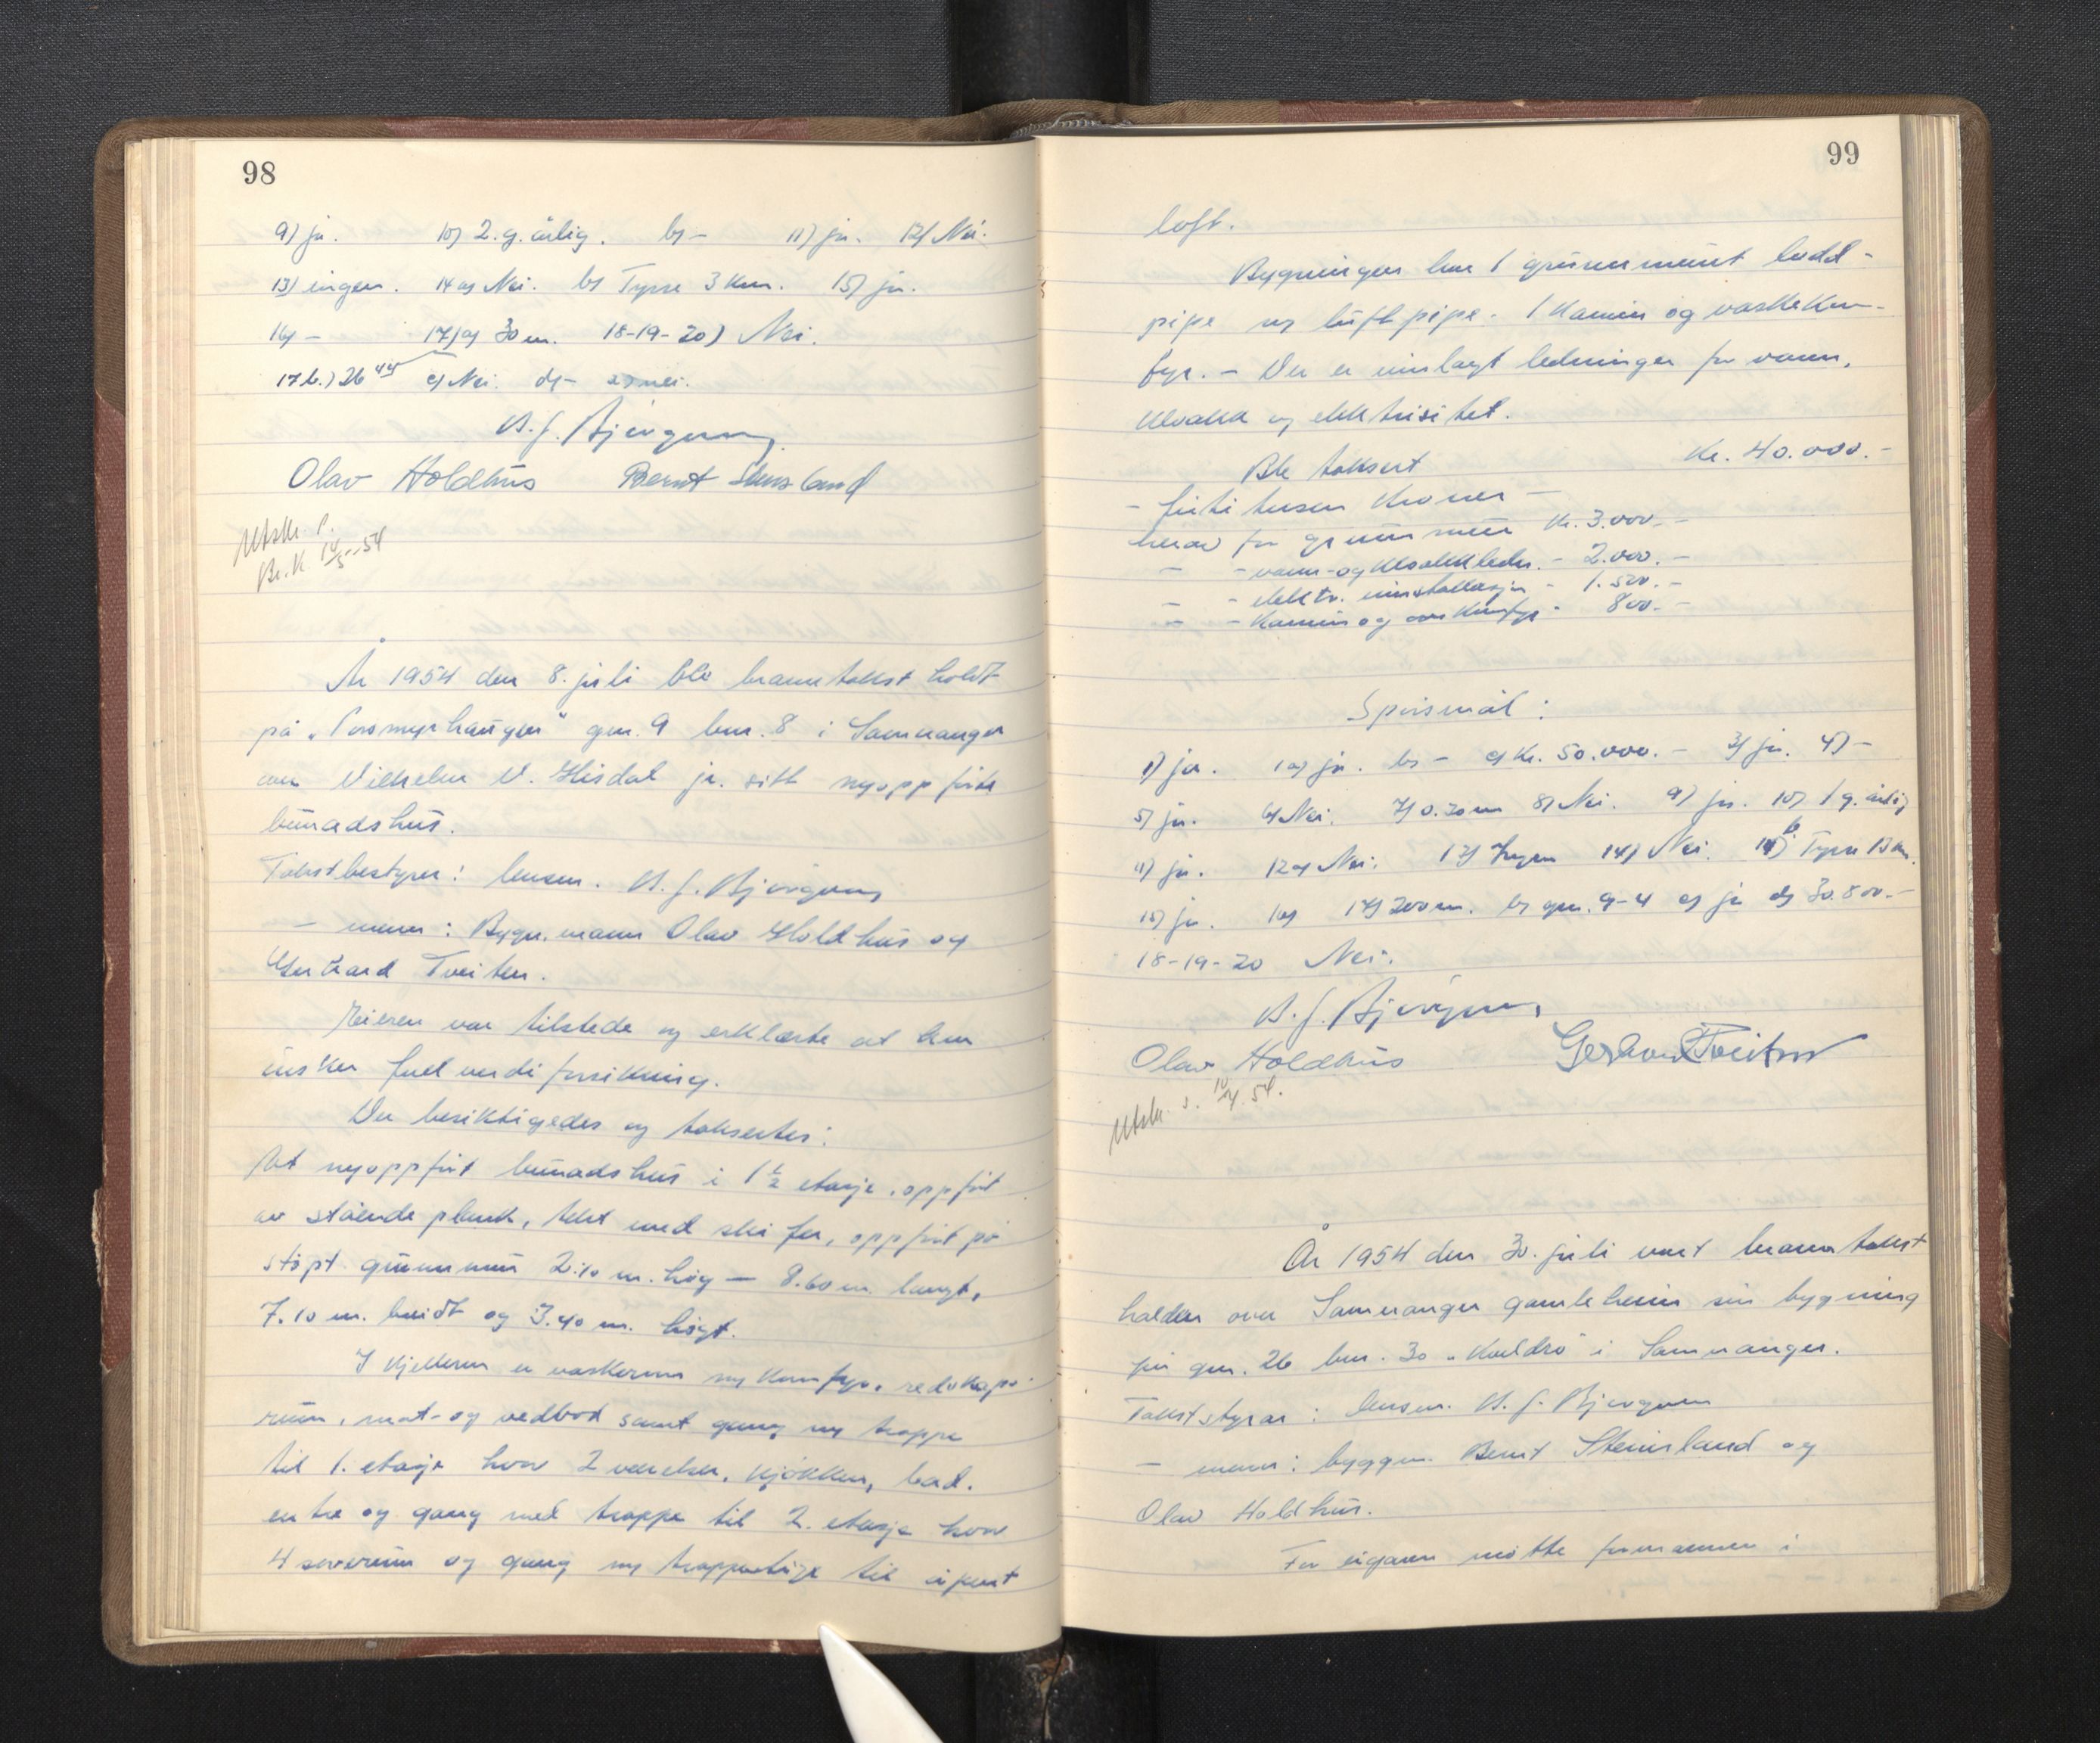 98
9) ja. 10) 2. g. årlig. b) - 11) ja. 12) Nei.
13) ingen. 14 a) Nei. b) Tysse 3 km. 15) ja.
16) - 17) a) 30 m. 18-19-20) Nei.
17 b.) 26 44 c) Nei. d) - e) nei.
Olav Holdhus Bernt Steinsland
Utskr. s.
Br.k. 14/5-54
År 1954 den 8. juli ble branntakst holdt
på "Porsmyrhaugen" gnr. 9 bnr. 8 i Samnanger
over Vilhelm V. Hisdal jr. sitt nyoppførte
bunadshus.
Takstbestyrer: lensm.
- menn: Bygn. mann Olav Holdhus og
Gerhard Tveiten.
Eieren var tilstede og erklærte at han
ønsker fullverdiforsikring.
Der besiktigedes og taksertes:
Et nyoppført bunadshus i 1½ etasje, oppført
av stående plank, tekt med skifer, oppført på
støpt grunnmur 2.10 m. høg - 8.60 m. langt,
7.10 m. breidt og 3.40 m. høgt.
I kjelleren er vaskerom m/ komfyr, redskaps-
rum, mat- og vedbod samt gang m/ trappe
til 1. etasje hvor 2 værelser, kjøkken, bad,
entre og gang med trappe til 2. etasje hvor
4 soverum og gang m/ trappestige til åpent
99
loft.
Bygningen har 1 grunnmuret ledd-
pipe m/ luftpipe. 1 kamin og vaskekom-
fyr. - Der er innlagt ledninger for vann,
kloakk og elektrisitet.
Ble taksert Kr. 40.000.-
- førti tusen kroner -
herav for grunnmur Kr. 3.000.-
- - vann- og kloakkledn. - 2.000.-
- - elektr. installasjon - 1.500.-
- - kamin og komfyr - 800.-
Spørsmål:
1) ja. 1 a) ja. b) - c) Kr. 50.000.- 3) ja. 4) -
5) ja. 6) Nei. 7) 0.30 m 8) Nei. 9) ja. 10) 1 g. årlig
11) ja. 12 a) Nei. 13) Ingen 14) Nei. 14) b Tysse 13 km.
15) ja. 16) 17) 200 m. b) gnr. 9-4 c) ja d) 30.800.-
18-19-20 Nei.
Olav Holdhus Gerhard Tveiten
Utskr. s. 54.
År 1954 den 30. juli vart branntakst
halden over Samnanger gamleheim sin bygning
på gnr. 26 bnr. 30 i Samnanger.
Takststyrar: lensm.
- menn: byggm. Bernt Steinsland og
Olav Holdhus.
For eigaren møtte formannen i